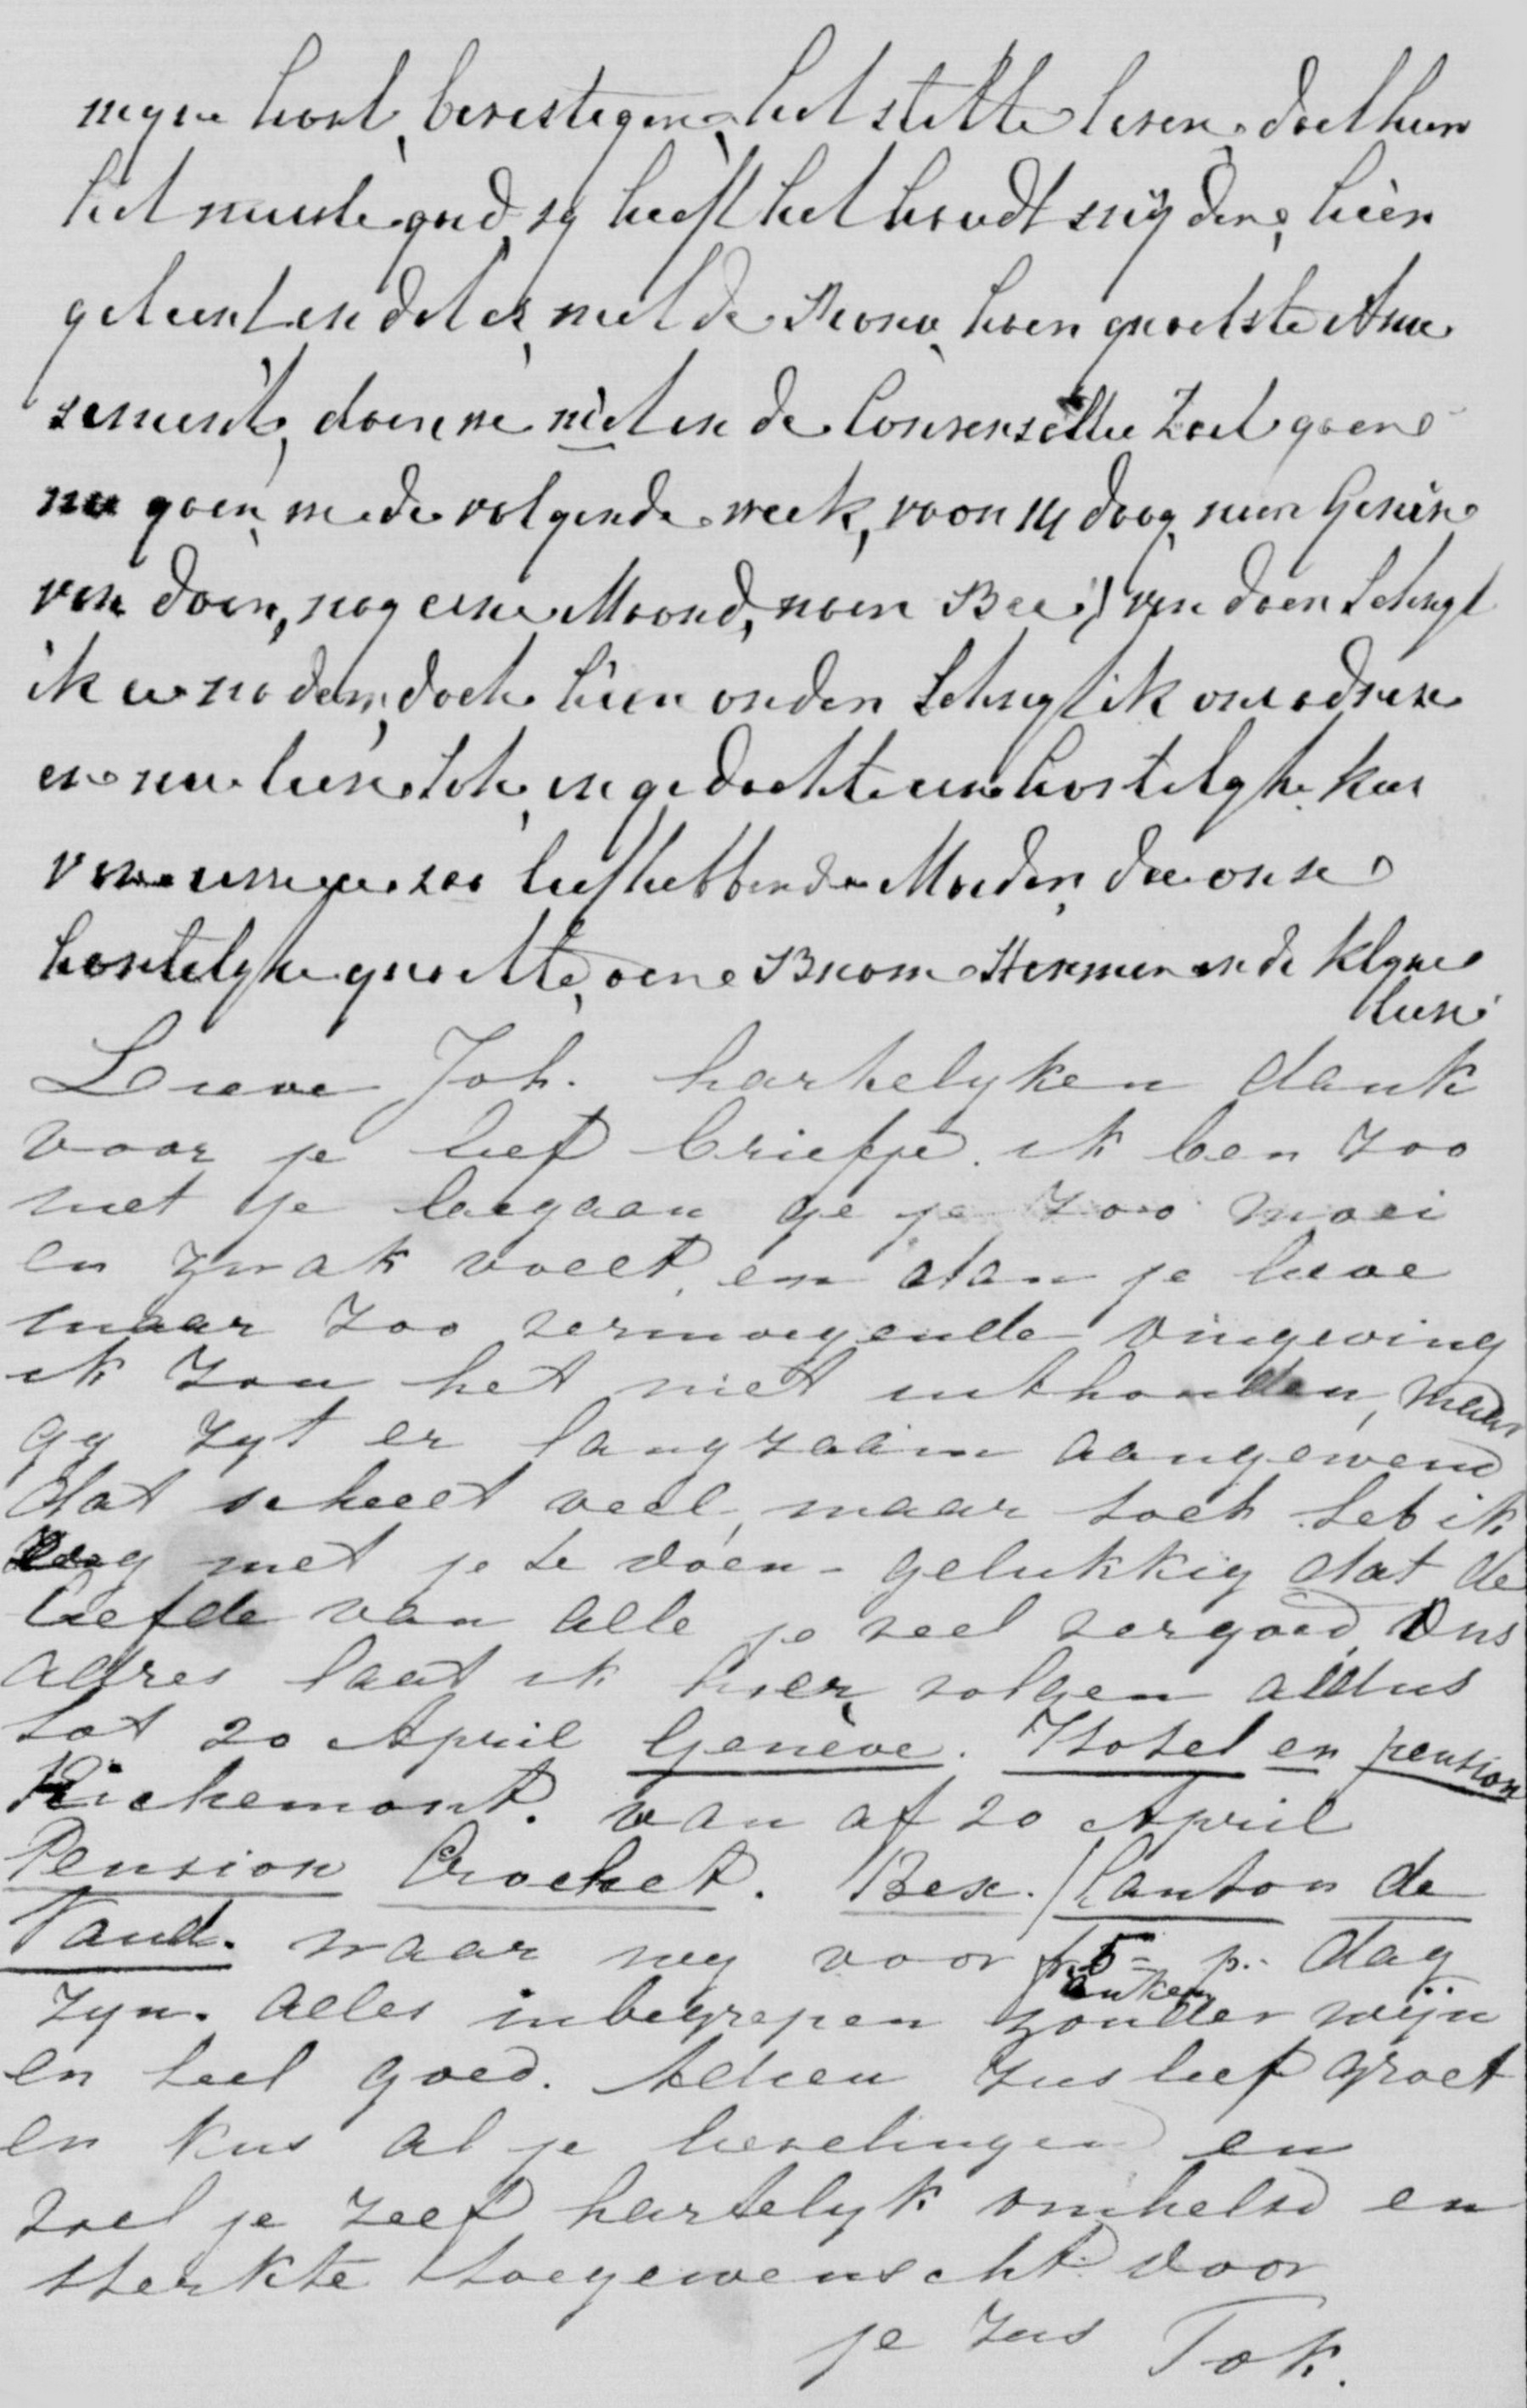 myne hart bevestegen, het stille leven, doet hem
het meeste goed, hy heeft het houdt snijden, hier
geleerd en dat is met de Piano haer grootste Amu
sement, doer we niet in de Conversatie Zael gaen
nu gaen we de volgende week, voor 14 daag naar Genève
van daer, nog eene Maand, naer Bex, van daer Schryf
ik u nader, doch hier onder Schryf ik ons adres
en nu lieve Joh, in gedachte een hartelyke kus
van uwe zoo liefhebbende Moeder, die onse
hartelyke groette, aen Bram Herman en de klyne
lieve
Lieve Joh. hartelyken dank
voor je lief briefje. ik ben zoo
met je begaan ge je zoo moei
en zwak voelt, en dan je lieve
maar zoo vermoeyende omgeving
ik zou het niet uithouden, maar
gy zyt er langzaam aangewend
dat scheelt veel, maar toch heb ik
nog met je te doen - gelukkig dat de
liefde van alle je veel vergoed. Ons
adres laat ik hier volgen aldus
tot 20 April Genève. Hotel en pension
Richemont. van af 20 April
Pension Crochet. Bex. Canton de
Vaud. waar wy voor fr 5 - p. dag
zyn. Alles inbegrepen zonder wijn
en heel goed. Adieu Zus lief groet
en kus al je lievelingen en
voel je zelf hartelyk omhelsd en
sterkte toegewenscht door
je Zus Tok.